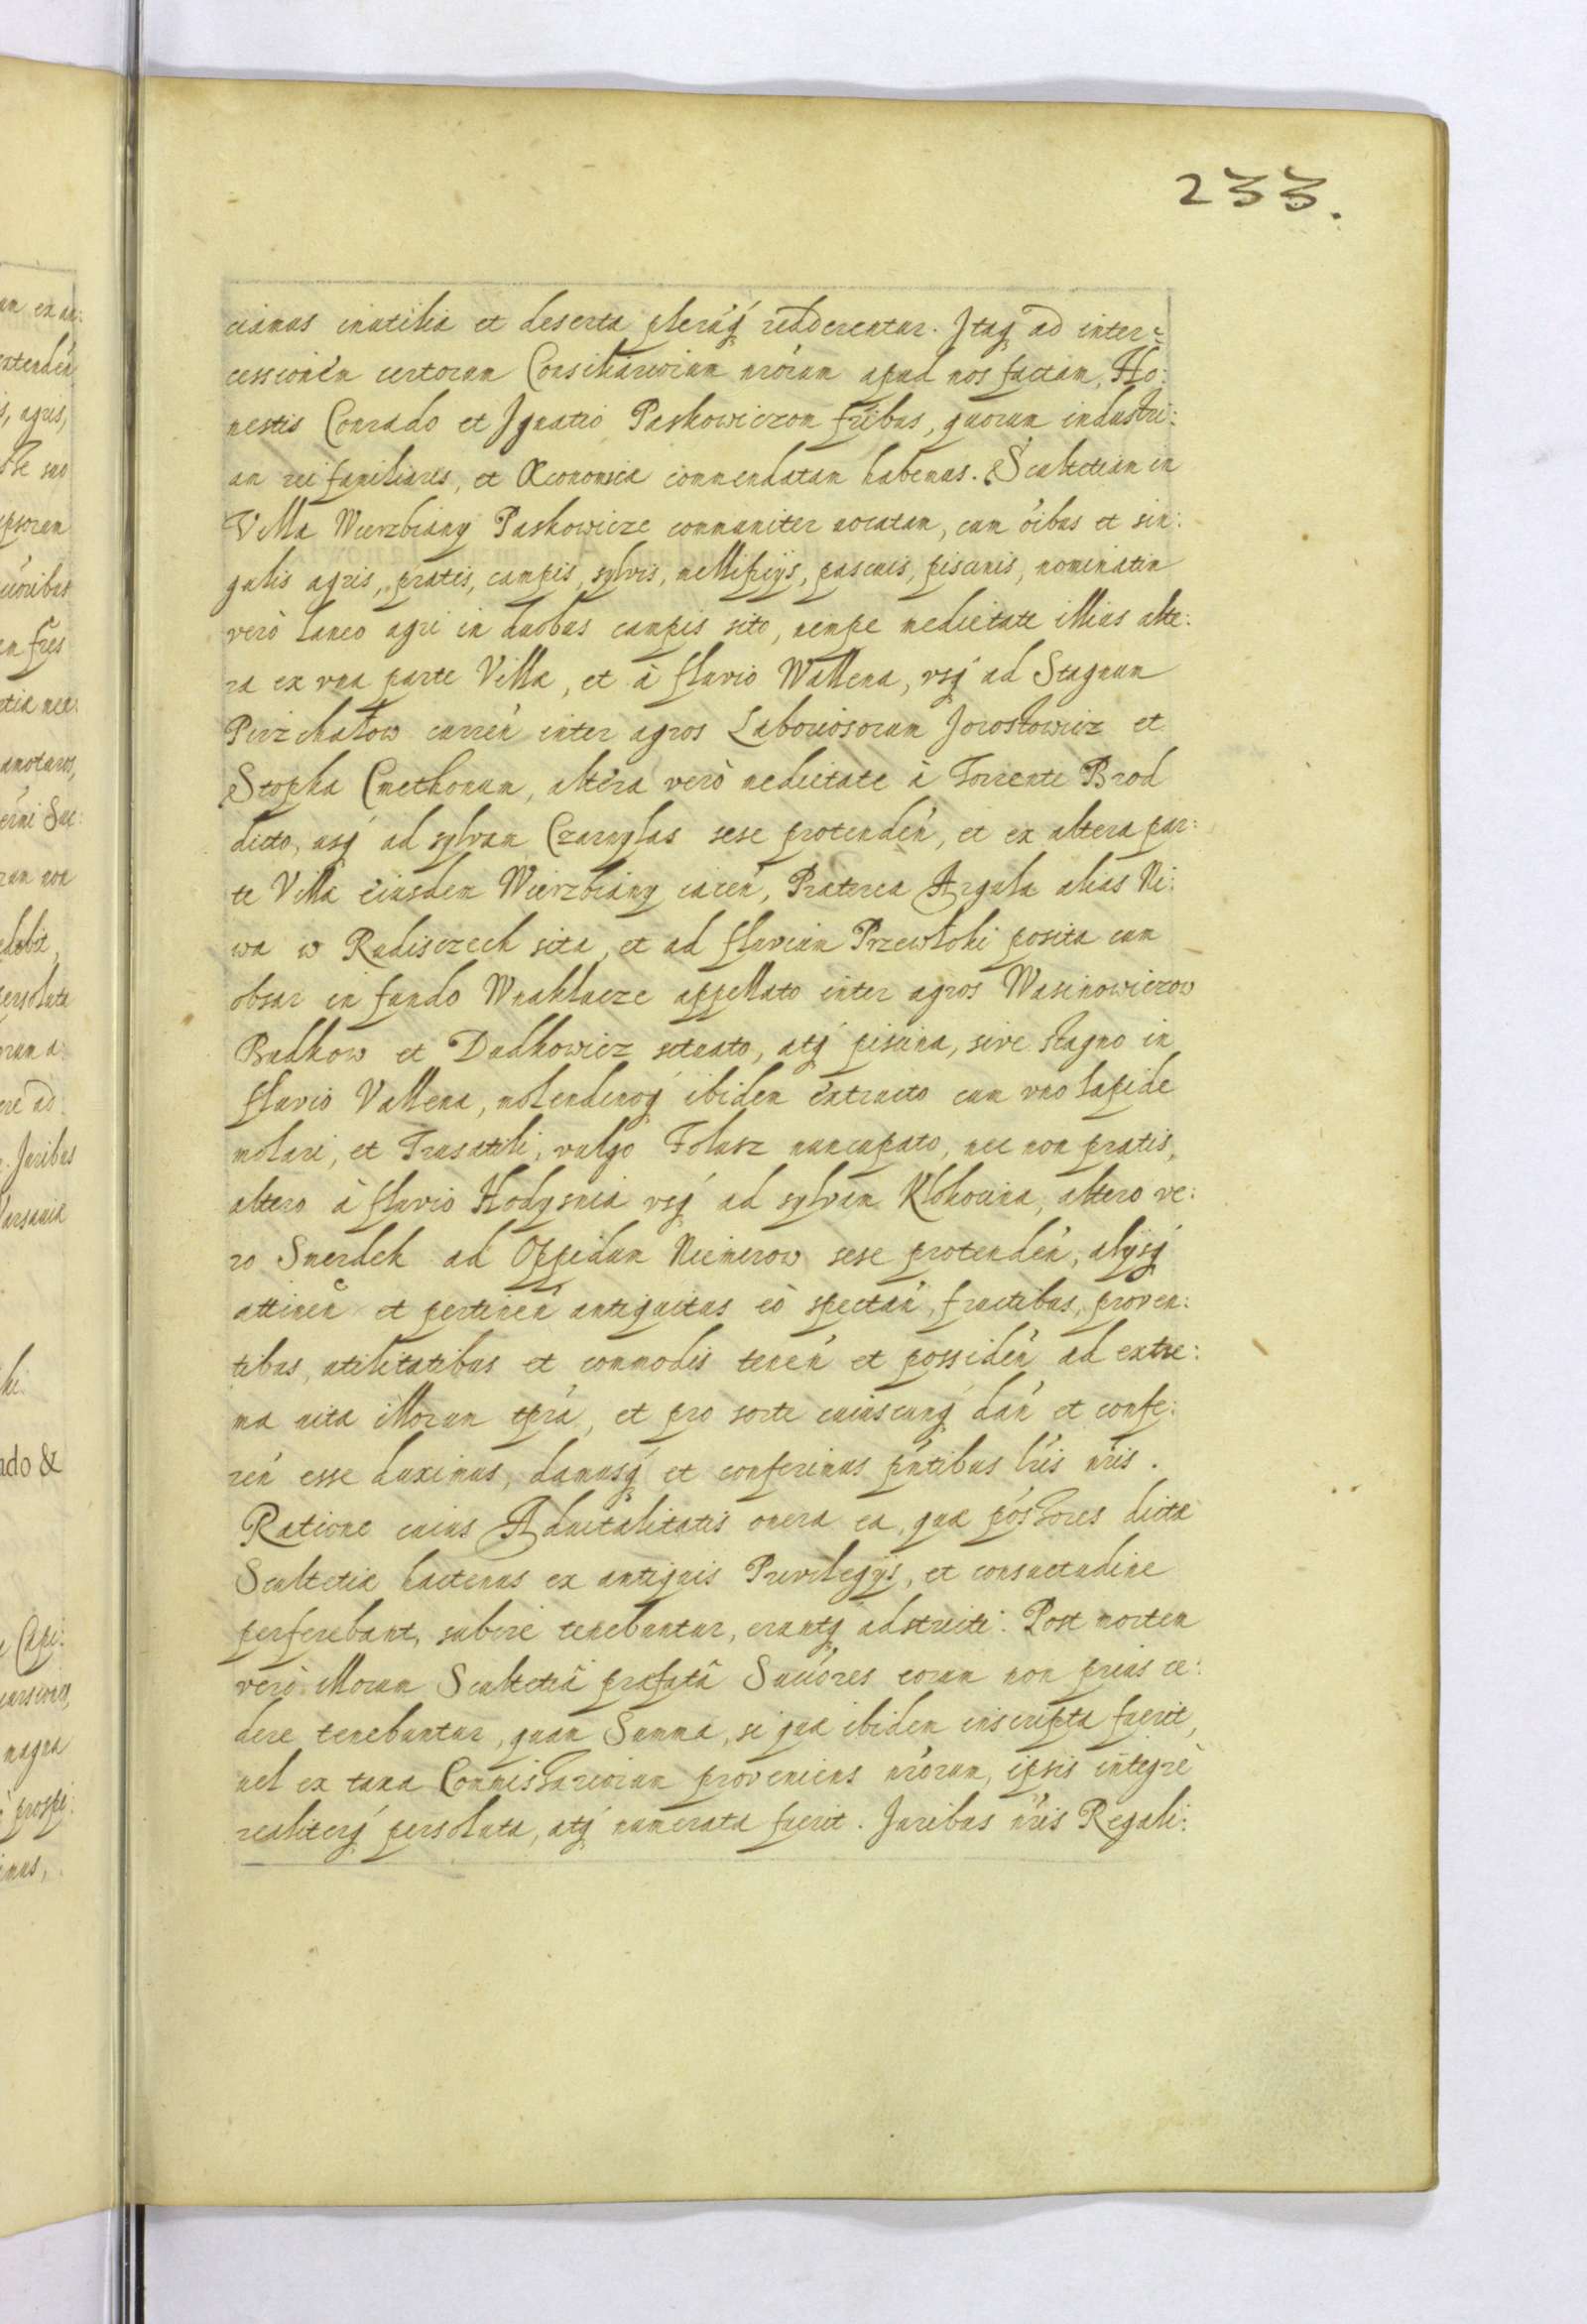 233.
cianus inutilia et deserta pleráq́ redderentur. Itaq́ ad inter:
cessionem certorum Consiliariorum nrórum apud nos factam, Ho:
nestis Conrado et Ignatio Paskowiczom frĩbus, quorum industri:
am rei familiaris, et Œconomiæ commendatam habemus. Scultetiam in
Villa Wierzbiany Paskowicze communiter uocatam, cum óibus et sin:
gulis agris, pratis, campis, sylvis, mellificijs, pascuis, piscinis, nominatim
verò laneo agri in duobus campis sito, nempe medietate illius alte:
ra ex vna parte Villæ, et à fluvio Wallena, vsq́ ad Stagnum
Pirzchałow curreń inter agros Laboriosorum Jorosłowicz et
Stopka Cmethonum, altera verò medietate à Torrente Brod
dicto, usq́ ad sylvam Czarnylas sese protendeń, et ex altera par:
te Villæ eiusdem Wierzbiany iaceń, Præterea Argula alias Ni:
wa w Radisczech sita, et ad fluvium Przewłoki posita cum
obsar in fundo Wnaklacze appellato inter agros Wasinowiczow
Budkow et Dudkowicz situato, atq́ piscina, sive stagno in
fluvio Vallena, molendinoq́ ibidem extructo cum vno lapide
molari, et Trusatili, vulgo Folusz nuncupato, nec non pratis,
altero à fluvio Hodysnia vsq́ ad sylvam Klokocina, altero ve:
ro Smerdek ad Oppidum Niemerow sese protendeń, alijsq́
attineń et pertineń antiquitus eò spectań, fructibus, proven:
tibus, utilitatibus et commodis teneń et possideń ad extre:
ma uitæ illorum tp̃ra, et pro sorte cuiuscunq́ dań et confe:
reń esse duximus, damusq́ et conferimus pńtibus lŕis nŕis.
Ratione cuius Aduitalitatis onera ea, quæ pośsores dictæ
Scultetiæ hactenus ex antiquis Privilegijs, et consuetudine
perferebant, subire tenebuntur, eruntq́ adstricti: Post mortem
verò illorum Scultetiâ præfatâ Succ̃ores eorum non prius ce:
dere tenebuntur, quam Summa, si quæ ibidem inscripta fuerit,
uel ex taxa Commissariorum proveniens nrórum, ipsis integrè
realiterq́ persoluta, atq́ numerata fuerit. Juribus nŕis Regali: